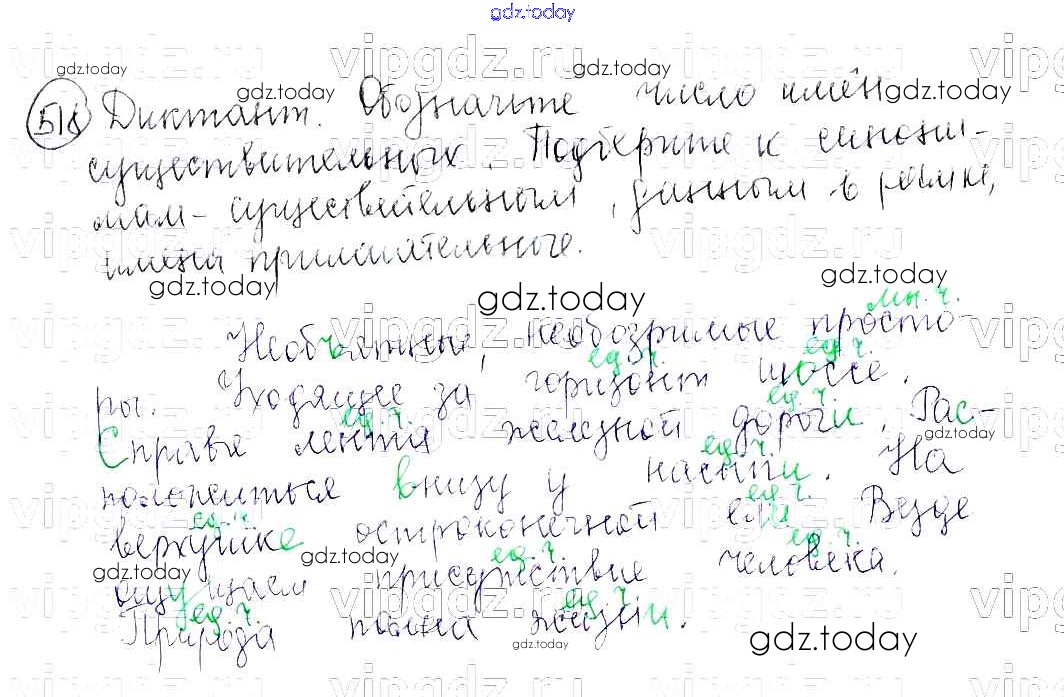 gdz.today
vipgdz.ru vipgdz.ru vipgdz.ru vip
gdz.today gdz.today gdz.today
518 Диктант. Обозначьте число имён
существительных. Подберите к синони-
мам-существительным, данным в рамке,
имена прилагательные.
vipgdz.ru vipgdz.ru vipgdz.ru vip
gdz.today gdz.today gdz.today
мн. ч.
Необъятные, необозримые просто-
ед. ч. ед. ч.
ры. Уходящее за горизонт шоссе.
ед. ч. ед. ч.
Справа лента железной дороги. Рас-
gdz.today
ед. ч.
положиться внизу у насыпи. На
ед. ч. ед. ч.
верхушке остроконечной ели. Везде
gdz.today gdz.today ед. ч. ед. ч. gdz.today
ощущаем присутствие человека.
ед. ч. ед. ч.
Природа полна жизни.
gdz.today gdz.today